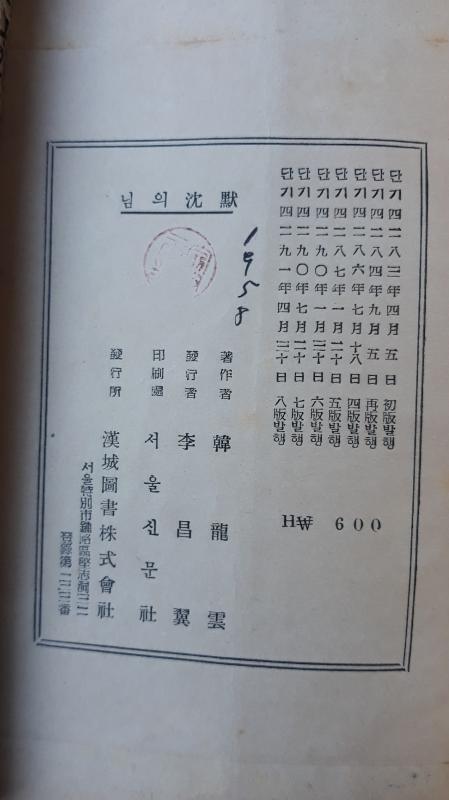 단기四二八三年四月五日 初版발행
단기四二八四年九月五日 再版발행
단기四二八六年七月十八日 四版발행
단기四二八七年一月二十日 五版발행
단기四二九〇年一月三十日 六版발행
단기四二九〇年七月二十日 七版발행
단기四二九一年四月三十日 八版발행
H₩ 600
님의 沈默
1958
著作者 韓龍雲
發行者 李昌翼
印刷處 서울신문社
發行所 漢城圖書株式會社
서울特別市鍾路區堅志洞三二
登錄第一二三番